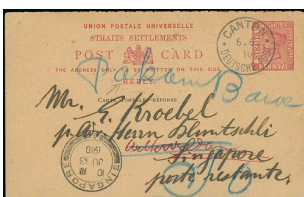 UNION POSTALE UNIVERSELLE
STRAITS SETTLEMENTS
POST CARD
THE ADDRESS ONLY TO BE WRITTEN ON THIS SIDE
REPLY
CARTE POSTALE-RÉPONSE
CANTON
DEUTSCHE
Mr. E. Kroebel
p. Adr. Herrn Bluntschli
Singapore
poste restante.
SINGAPORE
JU 13
1910